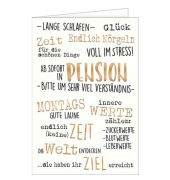 -LANGE SCHLAFEN- Glück
Zeit Endlich Nörgeln
für die schönen Dinge VOLL IM STRESS!
AB SOFORT IN PENSION
-BITTE UM SEHR VIEL VERSTÄNDNIS-
MONTAGS innere
GUTE LAUNE WERTE
zählen:
endlich (keine) ZEIT -ZUCKERWERTE
-BLUTWERTE
-LEBERWERTE
DIE Welt ENTDECKEN
...sie haben ihr ZIEL erreicht